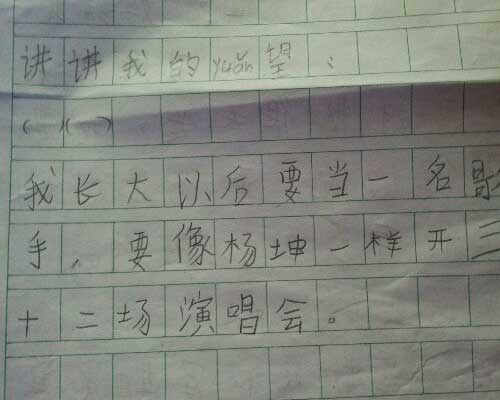 讲讲我的yuǎn望:
(一)(一)
我长大以后要当一名歌
手,要像杨坤一样开三
十二场演唱会。